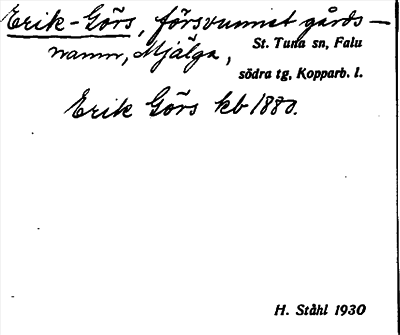 Erik-Görs, försvunnet gårds-
namn, Mjälga, St. Tuna sn, Falu
södra tg, Kopparb. l.
Erik Görs kb 1880.
H. Ståhl 1930